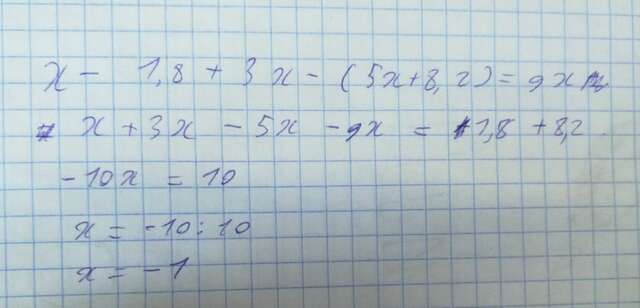 x - 1,8 + 3x - (5x+8,2) = 9x
x + 3x - 5x - 9x = 1,8 + 8,2
-10x = 10
x = -10:10
x = -1